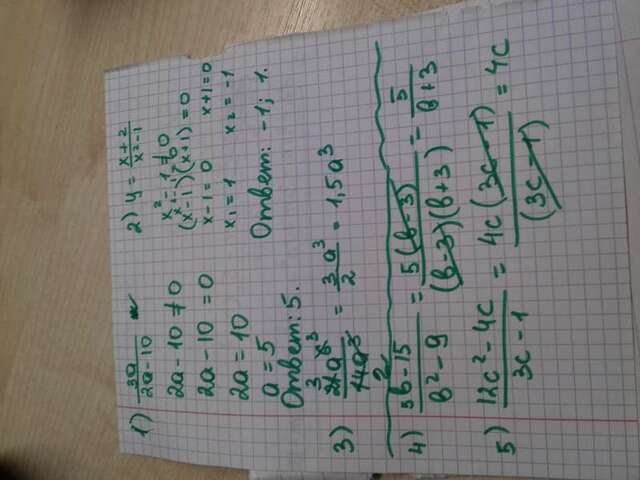 1) 3a/(2a-10)
2a-10≠0
2a-10=0
2a=10
a=5
Ответ: 5.
2) y = (x+2)/(x²-1)
x²-1≠0
(x-1)(x+1)=0
x-1=0 x+1=0
x₁=1 x₂=-1
Ответ: -1; 1.
3) 21a⁶/14a³ = 3a³/2 = 1,5a³
4) (5в-15)/(в²-9) = 5(в-3)/((в-3)(в+3)) = 5/(в+3)
5) (12c²-4c)/(3c-1) = 4c(3c-1)/(3c-1) = 4c